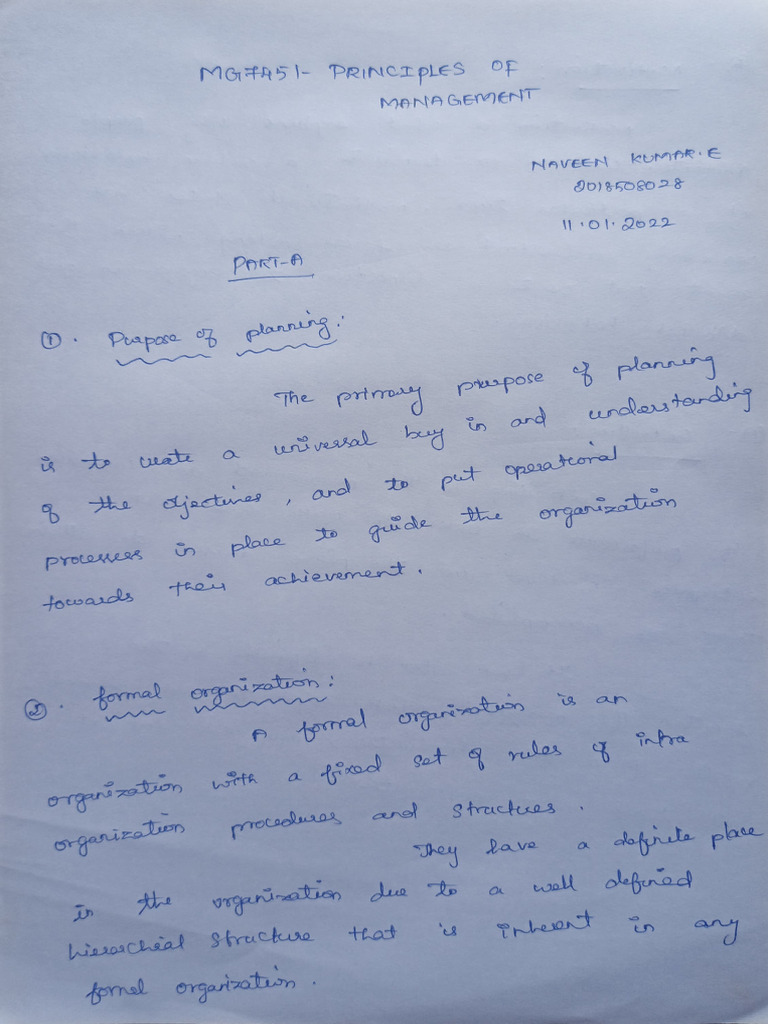 MG7451- PRINCIPLES OF
MANAGEMENT
NAVEEN KUMAR.E
2018508028
11.01.2022
PART-A
①. Purpose of planning:
The primary purpose of planning
is to create a universal buy in and understanding
of the objectives, and to put operational
processes in place to guide the organization
towards their achievement.
②. formal organization:
A formal organization is an
organization with a fixed set of rules of infra
organization procedures and structures.
They have a definite place
in the organization due to a well defined
hierarcheal structure that is inherent in any
formel organization.